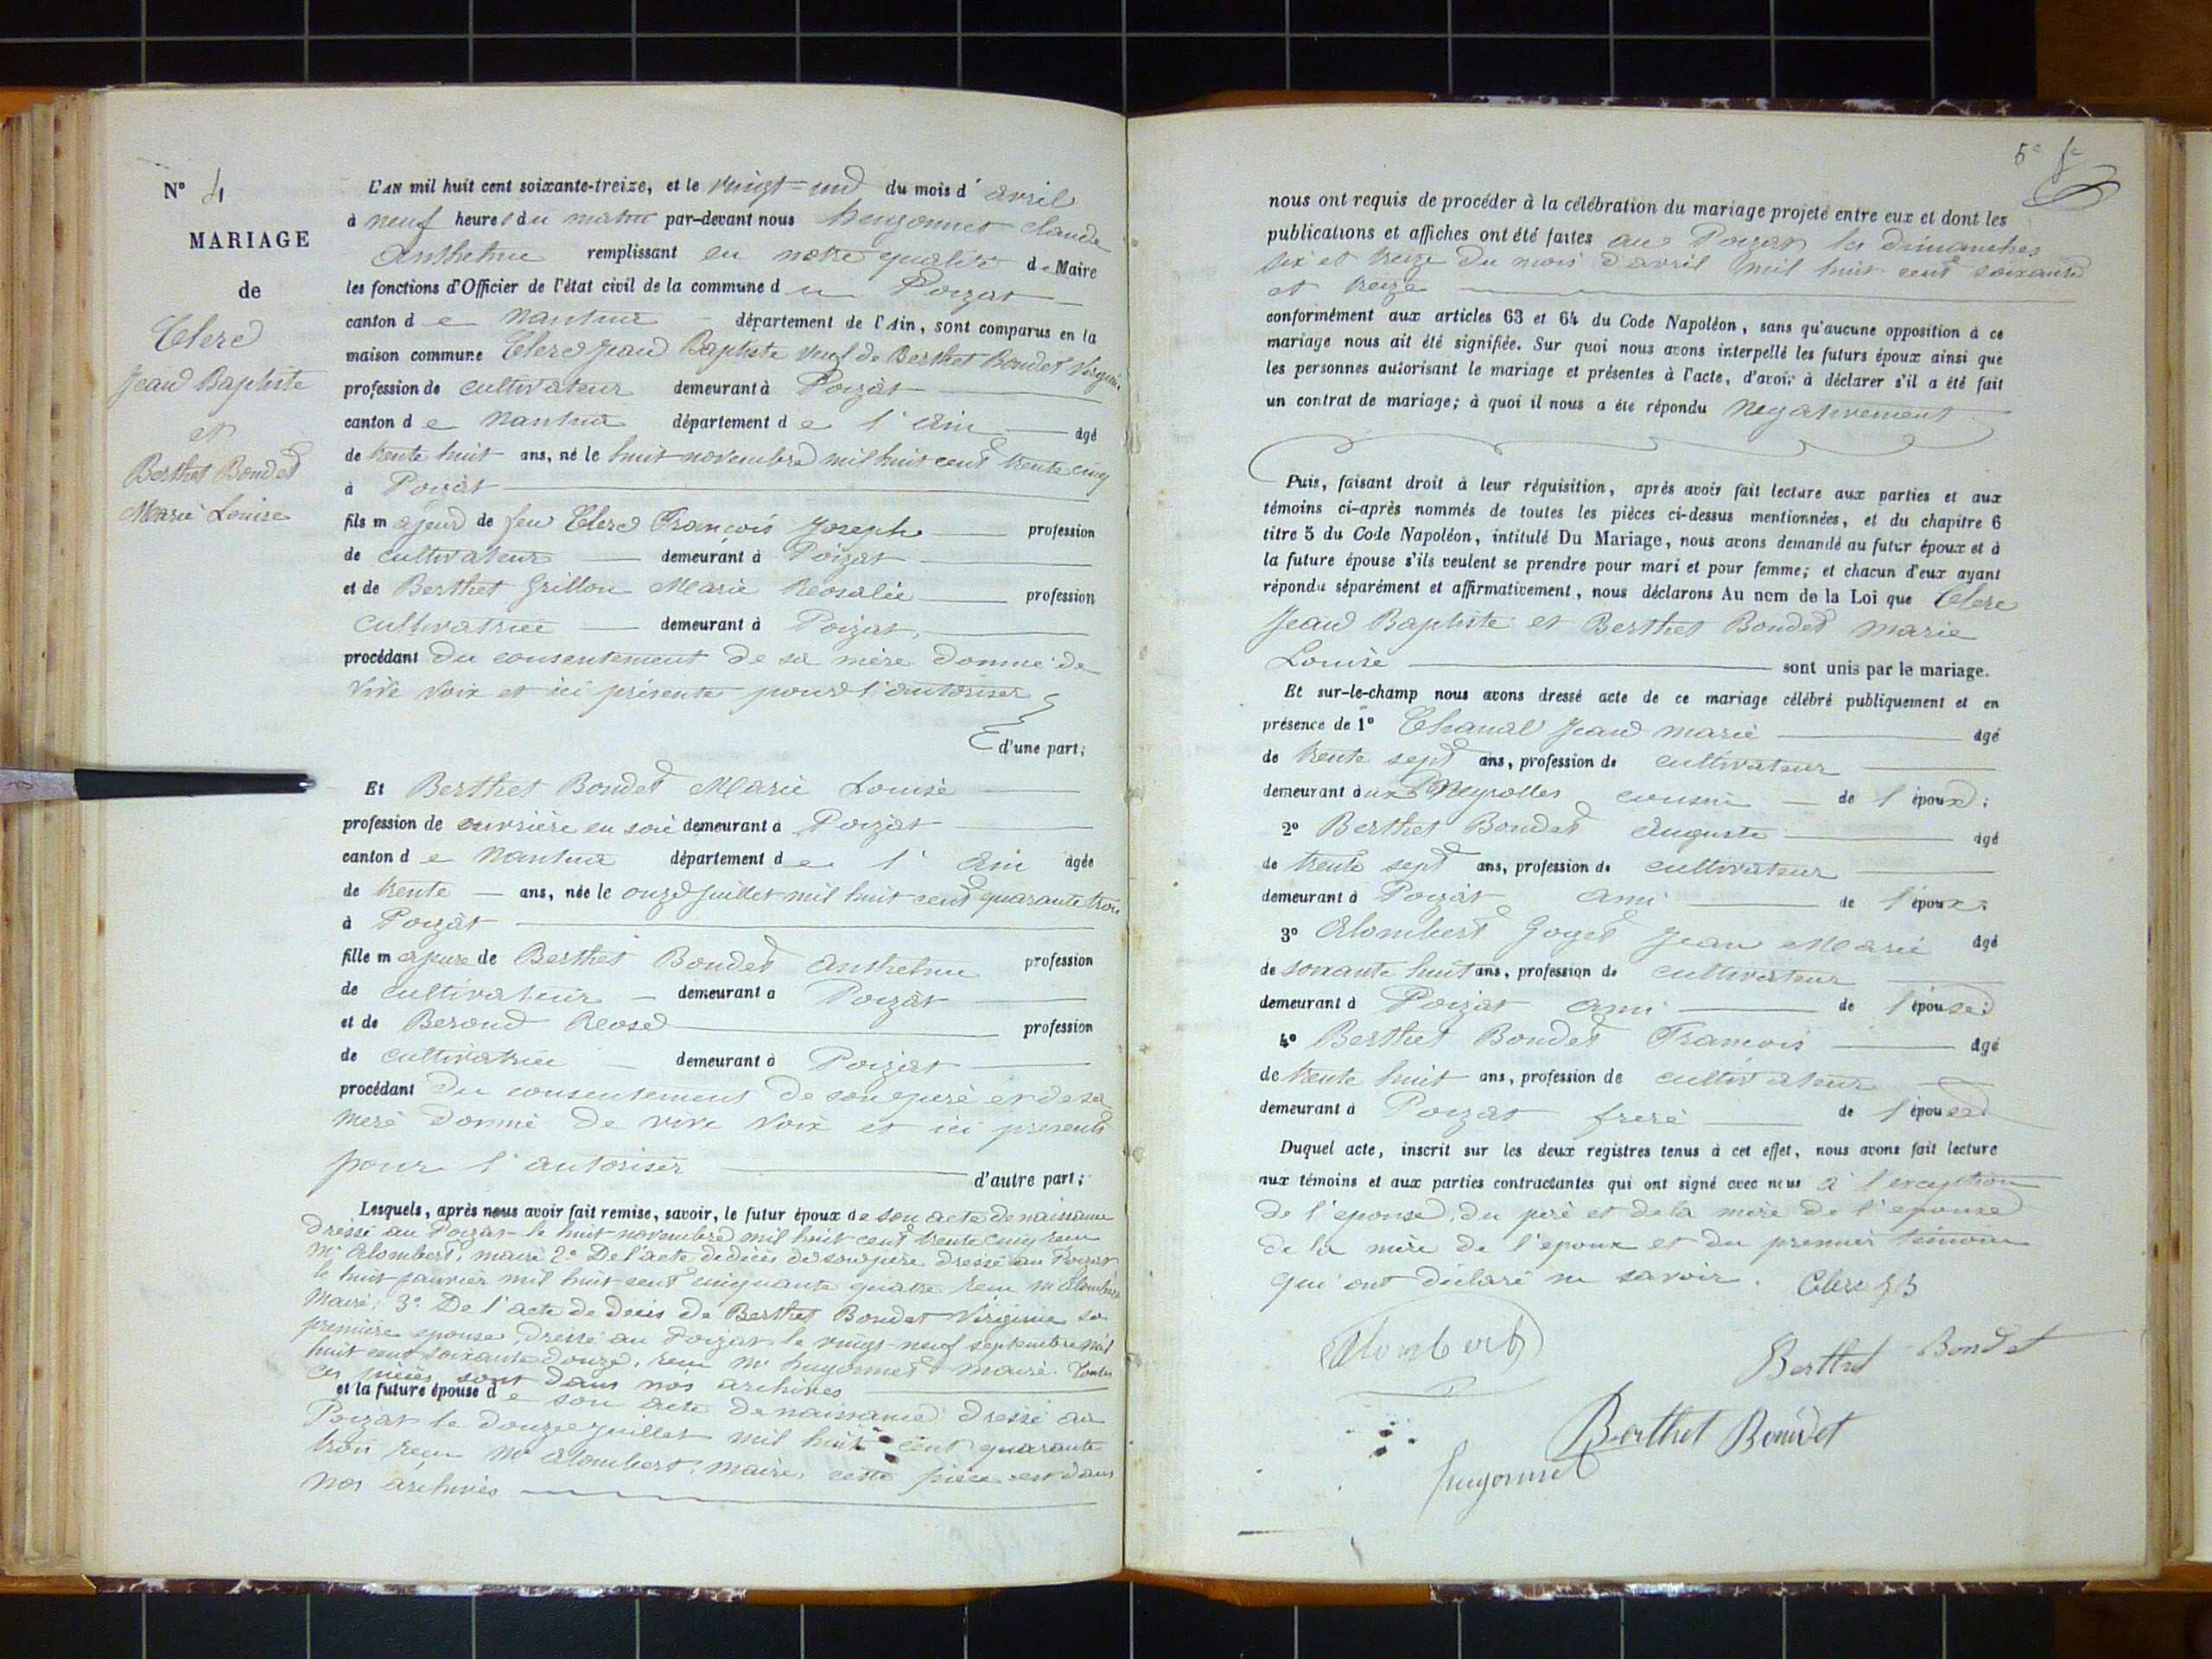 N° 4
MARIAGE
de
Clerc
Jean Baptiste
et
Berthet Bondet
Marie Louise
L'AN mil huit cent soixante-treize, et le vingt-un du mois d'avril
à neuf heures du matin par-devant nous hugonnet claude
Anthelme remplissant en notre qualité de Maire
les fonctions d'Officier de l'état civil de la commune du Poizat
canton de Nantua département de l'Ain, sont comparus en la
maison commune Clerc Jean Baptiste veuf de Berthet Bondet Virginie
profession de cultivateur demeurant à Poizat
canton de Nantua département de l'Ain âgé
de trente huit ans, né le huit novembre mil huit cent trente cinq
à Poizat
fils majeur de feu Clerc François Joseph profession
de cultivateur demeurant à Poizat
et de Berthet Grillon Marie Rosalie profession
cultivatrice demeurant à Poizat
procédant du consentement de sa mère donné de
vive voix et ici présente pour l'autoriser
d'une part;
Et Berthet Bondet Marie Louise
profession de ouvrière en soie demeurant à Poizat
canton de Nantua département de l'Ain âgée
de trente ans, née le onze juillet mil huit cent quarante trois
à Poizat
fille majeure de Berthet Bondet Anthelme profession
de cultivateur demeurant à Poizat
et de Beroud Rose profession
de cultivatrice demeurant à Poizat
procédant du consentement de son père et de sa
mère donné de vive voix et ici présents
pour l'autoriser d'autre part;
Lesquels, après nous avoir fait remise, savoir, le futur époux de son acte de naissance
dressé au Poizat le huit novembre mil huit cent trente cinq reçu
Mr Alombert, maire 2° De l'acte de décès de son père dressé au Poizat
le huit janvier mil huit cent cinquante quatre reçu Mr Alombert
Maire; 3° De l'acte de décès de Berthet Bondet Virginie sa
première épouse, dressé au Poizat le vingt-neuf septembre mil
huit cent soixante douze, reçu Mr hugonnet maire. Toutes
ces pièces sont dans nos archives
et la future épouse de son acte de naissance dressé au
Poizat le douze juillet mil huit cent quarante
trois reçu Mr Alombert, maire, cette pièce est dans
nos archives
5e
nous ont requis de procéder à la célébration du mariage projeté entre eux et dont les
publications et affiches ont été faites au Poizat les dimanches
six et treize du mois d'avril mil huit cent soixante
et treize
conformément aux articles 63 et 64 du Code Napoléon, sans qu'aucune opposition à ce
mariage nous ait été signifiée. Sur quoi nous avons interpellé les futurs époux ainsi que
les personnes autorisant le mariage et présentes à l'acte, d'avoir à déclarer s'il a été fait
un contrat de mariage; à quoi il nous a été répondu négativement
Puis, faisant droit à leur réquisition, après avoir fait lecture aux parties et aux
témoins ci-après nommés de toutes les pièces ci-dessus mentionnées, et du chapitre 6
titre 5 du Code Napoléon, intitulé Du Mariage, nous avons demandé au futur époux et à
la future épouse s'ils veulent se prendre pour mari et pour femme; et chacun d'eux ayant
répondu séparément et affirmativement, nous déclarons Au nom de la Loi que Clerc
Jean Baptiste et Berthet Bondet Marie
Louise sont unis par le mariage.
Et sur-le-champ nous avons dressé acte de ce mariage célébré publiquement et en
présence de 1° Chanal Jean Marie âgé
de trente sept ans, profession de cultivateur
demeurant aux Neyrolles cousin de l'époux;
2° Berthet Bondet Auguste âgé
de trente sept ans, profession de cultivateur
demeurant à Poizat ami de l'époux
3° Alombert Goget Jean Marie âgé
de soixante huit ans, profession de cultivateur
demeurant à Poizat ami de l'épouse
4° Berthet Bondet François âgé
de trente huit ans, profession de cultivateur
demeurant à Poizat frère de l'épouse
Duquel acte, inscrit sur les deux registres tenus à cet effet, nous avons fait lecture
aux témoins et aux parties contractantes qui ont signé avec nous à l'exception
de l'épouse, du père et de la mère de l'épouse
de la mère de l'époux et du premier témoin
qui ont déclaré ne savoir. Clerc J B
Alombert
Berthet Bondet
Berthet Bondet
hugonnet